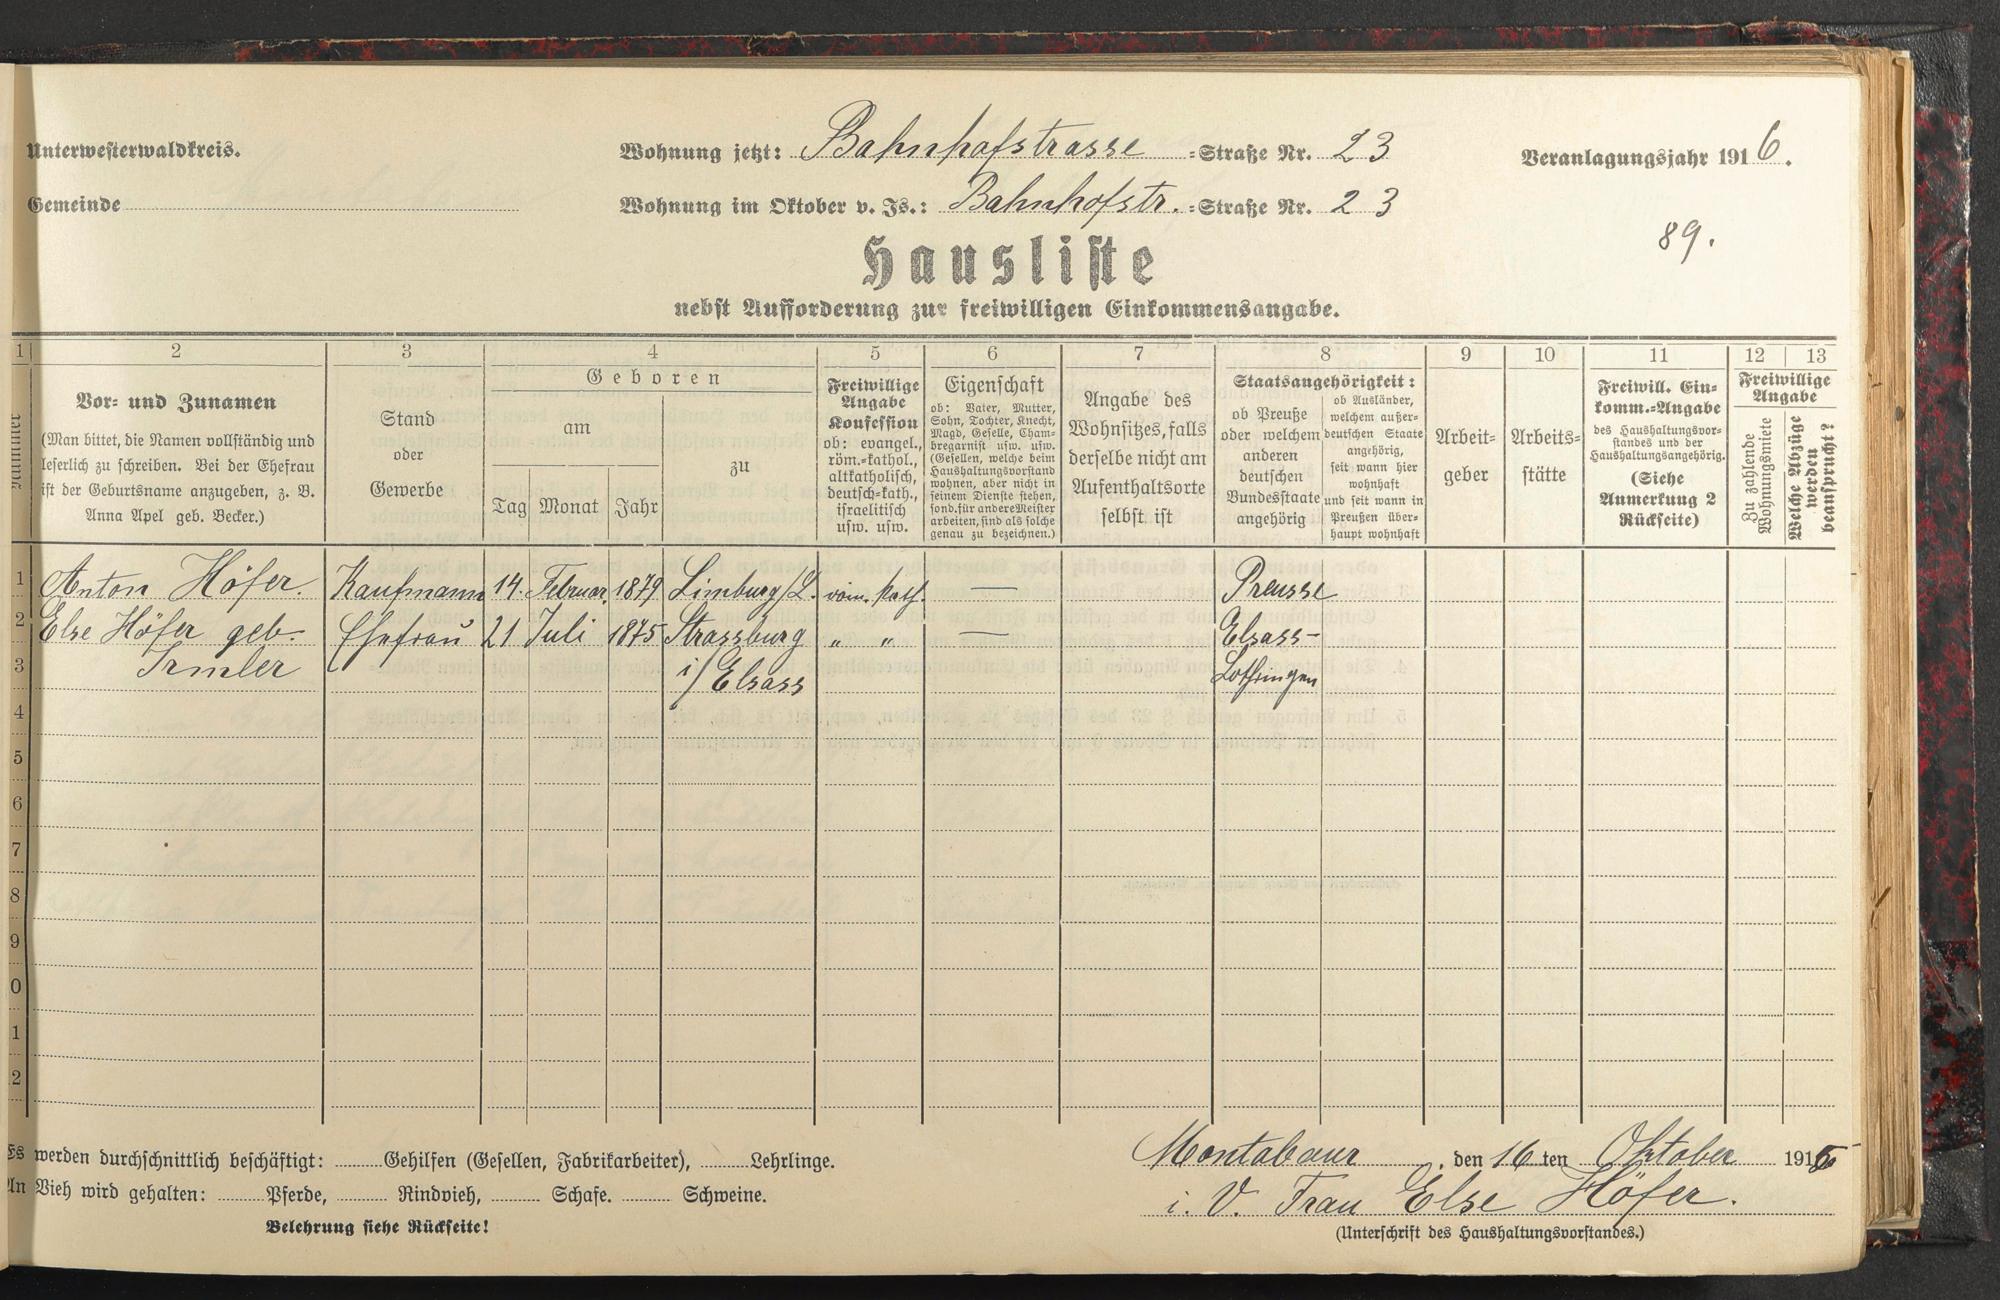 Unterwesterwaldkreis.
Wohnung jetzt: Bahnhofstrasse =Straße Nr. 23
Veranlagungsjahr 1916.
Gemeinde
Wohnung im Oktober v. Js.: Bahnhofstr. =Straße Nr. 23
89.
Hausliste
nebst Aufforderung zur freiwilligen Einkommensangabe.
1 2 3 4 5 6 7 8 9 10 11 12 13
Nummer
Vor- und Zunamen
(Man bittet, die Namen vollständig und
leserlich zu schreiben. Bei der Ehefrau
ist der Geburtsname anzugeben, z. B.
Anna Apel geb. Becker.)
Stand
oder
Gewerbe
Geboren
am
Tag Monat Jahr
zu
Freiwillige
Angabe
Konfession
ob: evangel.,
röm.=kathol.,
altkatholisch,
deutsch=kath.,
israelitisch
usw. usw.
Eigenschaft
ob: Vater, Mutter,
Sohn, Tochter, Knecht,
Magd, Geselle, Cham-
bregarnist usw. usw.
(Gesellen, welche beim
Haushaltungsvorstand
wohnen, aber nicht in
seinem Dienste stehen,
sond. für andere Meister
arbeiten, sind als solche
genau zu bezeichnen.)
Angabe des
Wohnsitzes, falls
derselbe nicht am
Aufenthaltsorte
selbst ist
Staatsangehörigkeit:
ob Preuße
oder welchem
anderen
deutschen
Bundesstaate
angehörig
ob Ausländer,
welchem außer-
deutschen Staate
angehörig,
seit wann hier
wohnhaft
und seit wann in
Preußen über-
haupt wohnhaft
Arbeit-
geber
Arbeits-
stätte
Freiwill. Ein-
komm.=Angabe
des Haushaltungsvor-
standes und der
Haushaltungsangehörig.
(Siehe
Anmerkung 2
Rückseite)
Freiwillige
Angabe
Zu zahlende
Wohnungsmiete
Welche Abzüge
werden
beansprucht?
1 Anton Höfer. Kaufmann 14. Februar. 1879 Limburg/L. röm. kath. — Preusse
2 Else Höfer geb. Ehefrau 21 Juli 1875 Strassburg " " — Elsass-
3 Irmler i/Elsass Lothringen
4
5
6
7
8
9
0
1
2
Es werden durchschnittlich beschäftigt: Gehilfen (Gesellen, Fabrikarbeiter), Lehrlinge.
An Vieh wird gehalten: Pferde, Rindvieh, Schafe. Schweine.
Belehrung siehe Rückseite!
Montabaur, den 16ten Oktober 191
i. V. Frau Else Höfer.
(Unterschrift des Haushaltungsvorstandes.)